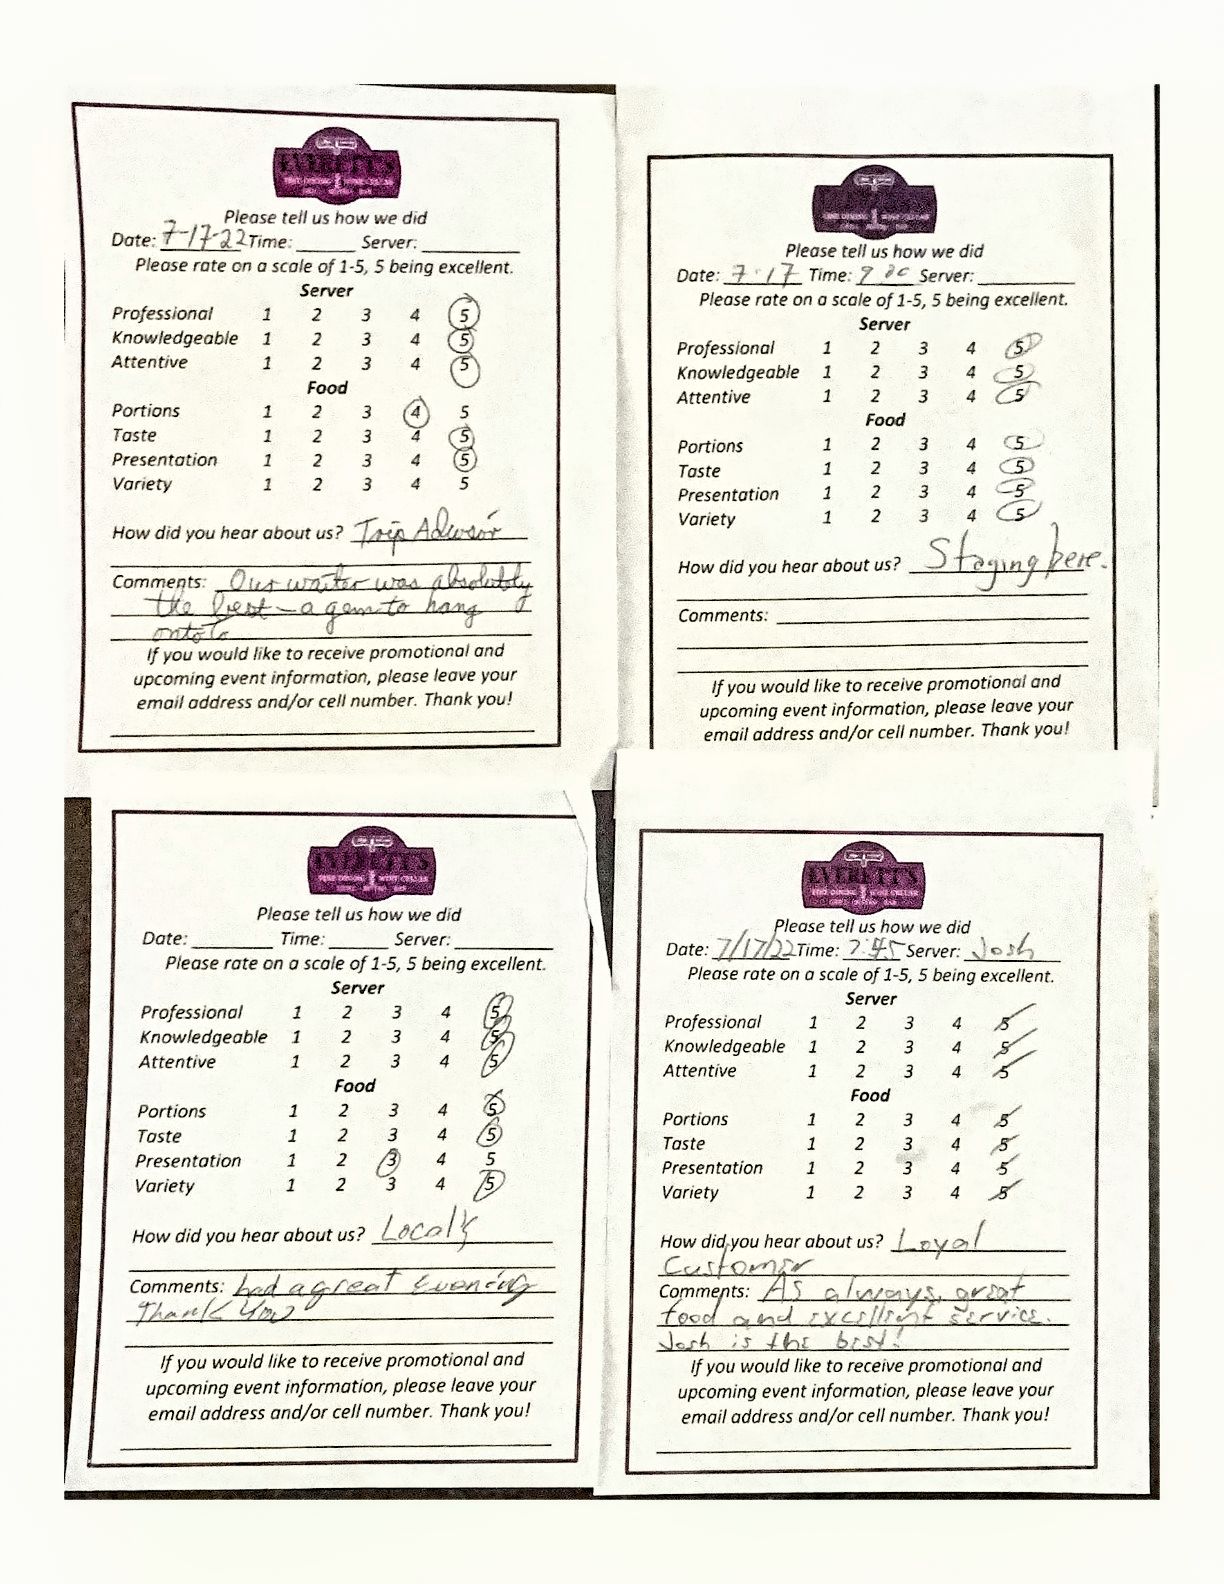 EVERETT'S
FINE DINING WINE CELLAR
Please tell us how we did
Date: 7-17-22 Time: ______ Server: __________
Please rate on a scale of 1-5, 5 being excellent.
Server
Professional 1 2 3 4 5
Knowledgeable 1 2 3 4 5
Attentive 1 2 3 4 5
Food
Portions 1 2 3 4 5
Taste 1 2 3 4 5
Presentation 1 2 3 4 5
Variety 1 2 3 4 5
How did you hear about us? Trip Advisor
Comments: Our waiter was absolutely
the best - a gem to hang
onto
If you would like to receive promotional and
upcoming event information, please leave your
email address and/or cell number. Thank you!
FINE DINING WINE CELLAR
Please tell us how we did
Date: 7-17 Time: Server: __________
Please rate on a scale of 1-5, 5 being excellent.
Server
Professional 1 2 3 4 5
Knowledgeable 1 2 3 4 5
Attentive 1 2 3 4 5
Food
Portions 1 2 3 4 5
Taste 1 2 3 4 5
Presentation 1 2 3 4 5
Variety 1 2 3 4 5
How did you hear about us? Staging here.
Comments:
If you would like to receive promotional and
upcoming event information, please leave your
email address and/or cell number. Thank you!
EVERETT'S
FINE DINING WINE CELLAR
Please tell us how we did
Date: ________ Time: ______ Server: __________
Please rate on a scale of 1-5, 5 being excellent.
Server
Professional 1 2 3 4 5
Knowledgeable 1 2 3 4 5
Attentive 1 2 3 4 5
Food
Portions 1 2 3 4 5
Taste 1 2 3 4 5
Presentation 1 2 3 4 5
Variety 1 2 3 4 5
How did you hear about us? Locals
Comments: had a great evening
Thank You
If you would like to receive promotional and
upcoming event information, please leave your
email address and/or cell number. Thank you!
EVERETT'S
FINE DINING WINE CELLAR
Please tell us how we did
Date: 7/17/22 Time: 7:45 Server: Josh
Please rate on a scale of 1-5, 5 being excellent.
Server
Professional 1 2 3 4 5
Knowledgeable 1 2 3 4 5
Attentive 1 2 3 4 5
Food
Portions 1 2 3 4 5
Taste 1 2 3 4 5
Presentation 1 2 3 4 5
Variety 1 2 3 4 5
How did you hear about us? Loyal
Customer
Comments: As always, great
food and excellent service.
Josh is the best!
If you would like to receive promotional and
upcoming event information, please leave your
email address and/or cell number. Thank you!